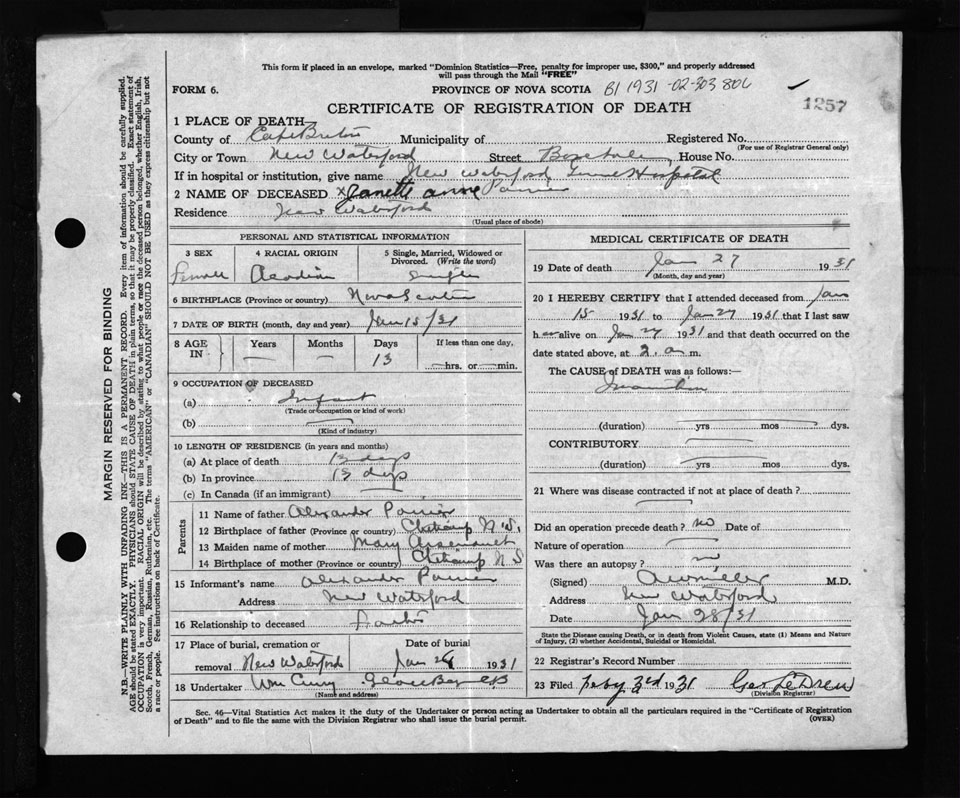 This form if placed in an envelope, marked "Dominion Statistics—Free, penalty for improper use, $300," and properly addressed
will pass through the Mail "FREE"
FORM 6. PROVINCE OF NOVA SCOTIA B1 1931-02-303806
1257
CERTIFICATE OF REGISTRATION OF DEATH
1 PLACE OF DEATH—
County of Cape Breton Municipality of Registered No.
(For use of Registrar General only)
City or Town New Waterford Street House No.
If in hospital or institution, give name New Waterford General Hospital
2 NAME OF DECEASED x Janette Anne Poirier
Residence New Waterford
(Usual place of abode)
PERSONAL AND STATISTICAL INFORMATION
3 SEX 4 RACIAL ORIGIN 5 Single, Married, Widowed or Divorced. (Write the word)
Female Acadian Single
6 BIRTHPLACE (Province or country) Nova Scotia
7 DATE OF BIRTH (month, day and year) Jan 15/31
8 AGE IN Years Months Days If less than one day,
— — 13 —hrs. or—min.
9 OCCUPATION OF DECEASED
(a) Infant
(Trade or occupation or kind of work)
(b) —
(Kind of industry)
10 LENGTH OF RESIDENCE (in years and months)
(a) At place of death 13 days
(b) In province 13 days
(c) In Canada (if an immigrant) —
Parents
11 Name of father Alexander Poirier
12 Birthplace of father (Province or country) Cheticamp N.S.
13 Maiden name of mother Mary Arsenault
14 Birthplace of mother (Province or country) Cheticamp N S
15 Informant's name Alexander Poirier
Address New Waterford
16 Relationship to deceased Father
17 Place of burial, cremation or removal New Waterford Date of burial Jan 28 1931
18 Undertaker Wm Curry Glace Bay CB
(Name and address)
MEDICAL CERTIFICATE OF DEATH
19 Date of death Jan 27 1931
(Month, day and year)
20 I HEREBY CERTIFY that I attended deceased from Jan
15 1931 to Jan 27 1931 that I last saw
h er alive on Jan 27 1931 and that death occurred on the
date stated above, at 2. a m.
The CAUSE OF DEATH was as follows:—
Inanition
(duration) yrs mos dys.
CONTRIBUTORY
(duration) yrs mos dys.
21 Where was disease contracted if not at place of death?
Did an operation precede death? no Date of
Nature of operation
Was there an autopsy? no
(Signed) M.D.
Address New Waterford
Date Jan 28/31
State the Disease causing Death, or in death from Violent Causes, state (1) Means and Nature
of Injury, (2) whether Accidental, Suicidal or Homicidal.
22 Registrar's Record Number
23 Filed Feby 3rd 1931 Geo LeDrew
(Division Registrar)
Sec. 46—Vital Statistics Act makes it the duty of the Undertaker or person acting as Undertaker to obtain all the particulars required in the "Certificate of Registration
of Death" and to file the same with the Division Registrar who shall issue the burial permit.
(OVER)
MARGIN RESERVED FOR BINDING
N.B.—WRITE PLAINLY WITH UNFADING INK—THIS IS A PERMANENT RECORD. Every item of information should be carefully supplied.
AGE should be stated EXACTLY. PHYSICIANS should STATE CAUSE OF DEATH in plain terms, so that it may be properly classified. Exact statement of
OCCUPATION is very important. RACIAL ORIGIN will be described by stating to what people or race the deceased person belonged, whether English, Irish,
Scotch, French, German, Russian, Ruthenian, etc. The terms "AMERICAN" or "CANADIAN" SHOULD NOT BE USED as they express citizenship but not
a race or people. See instructions on back of Certificate.